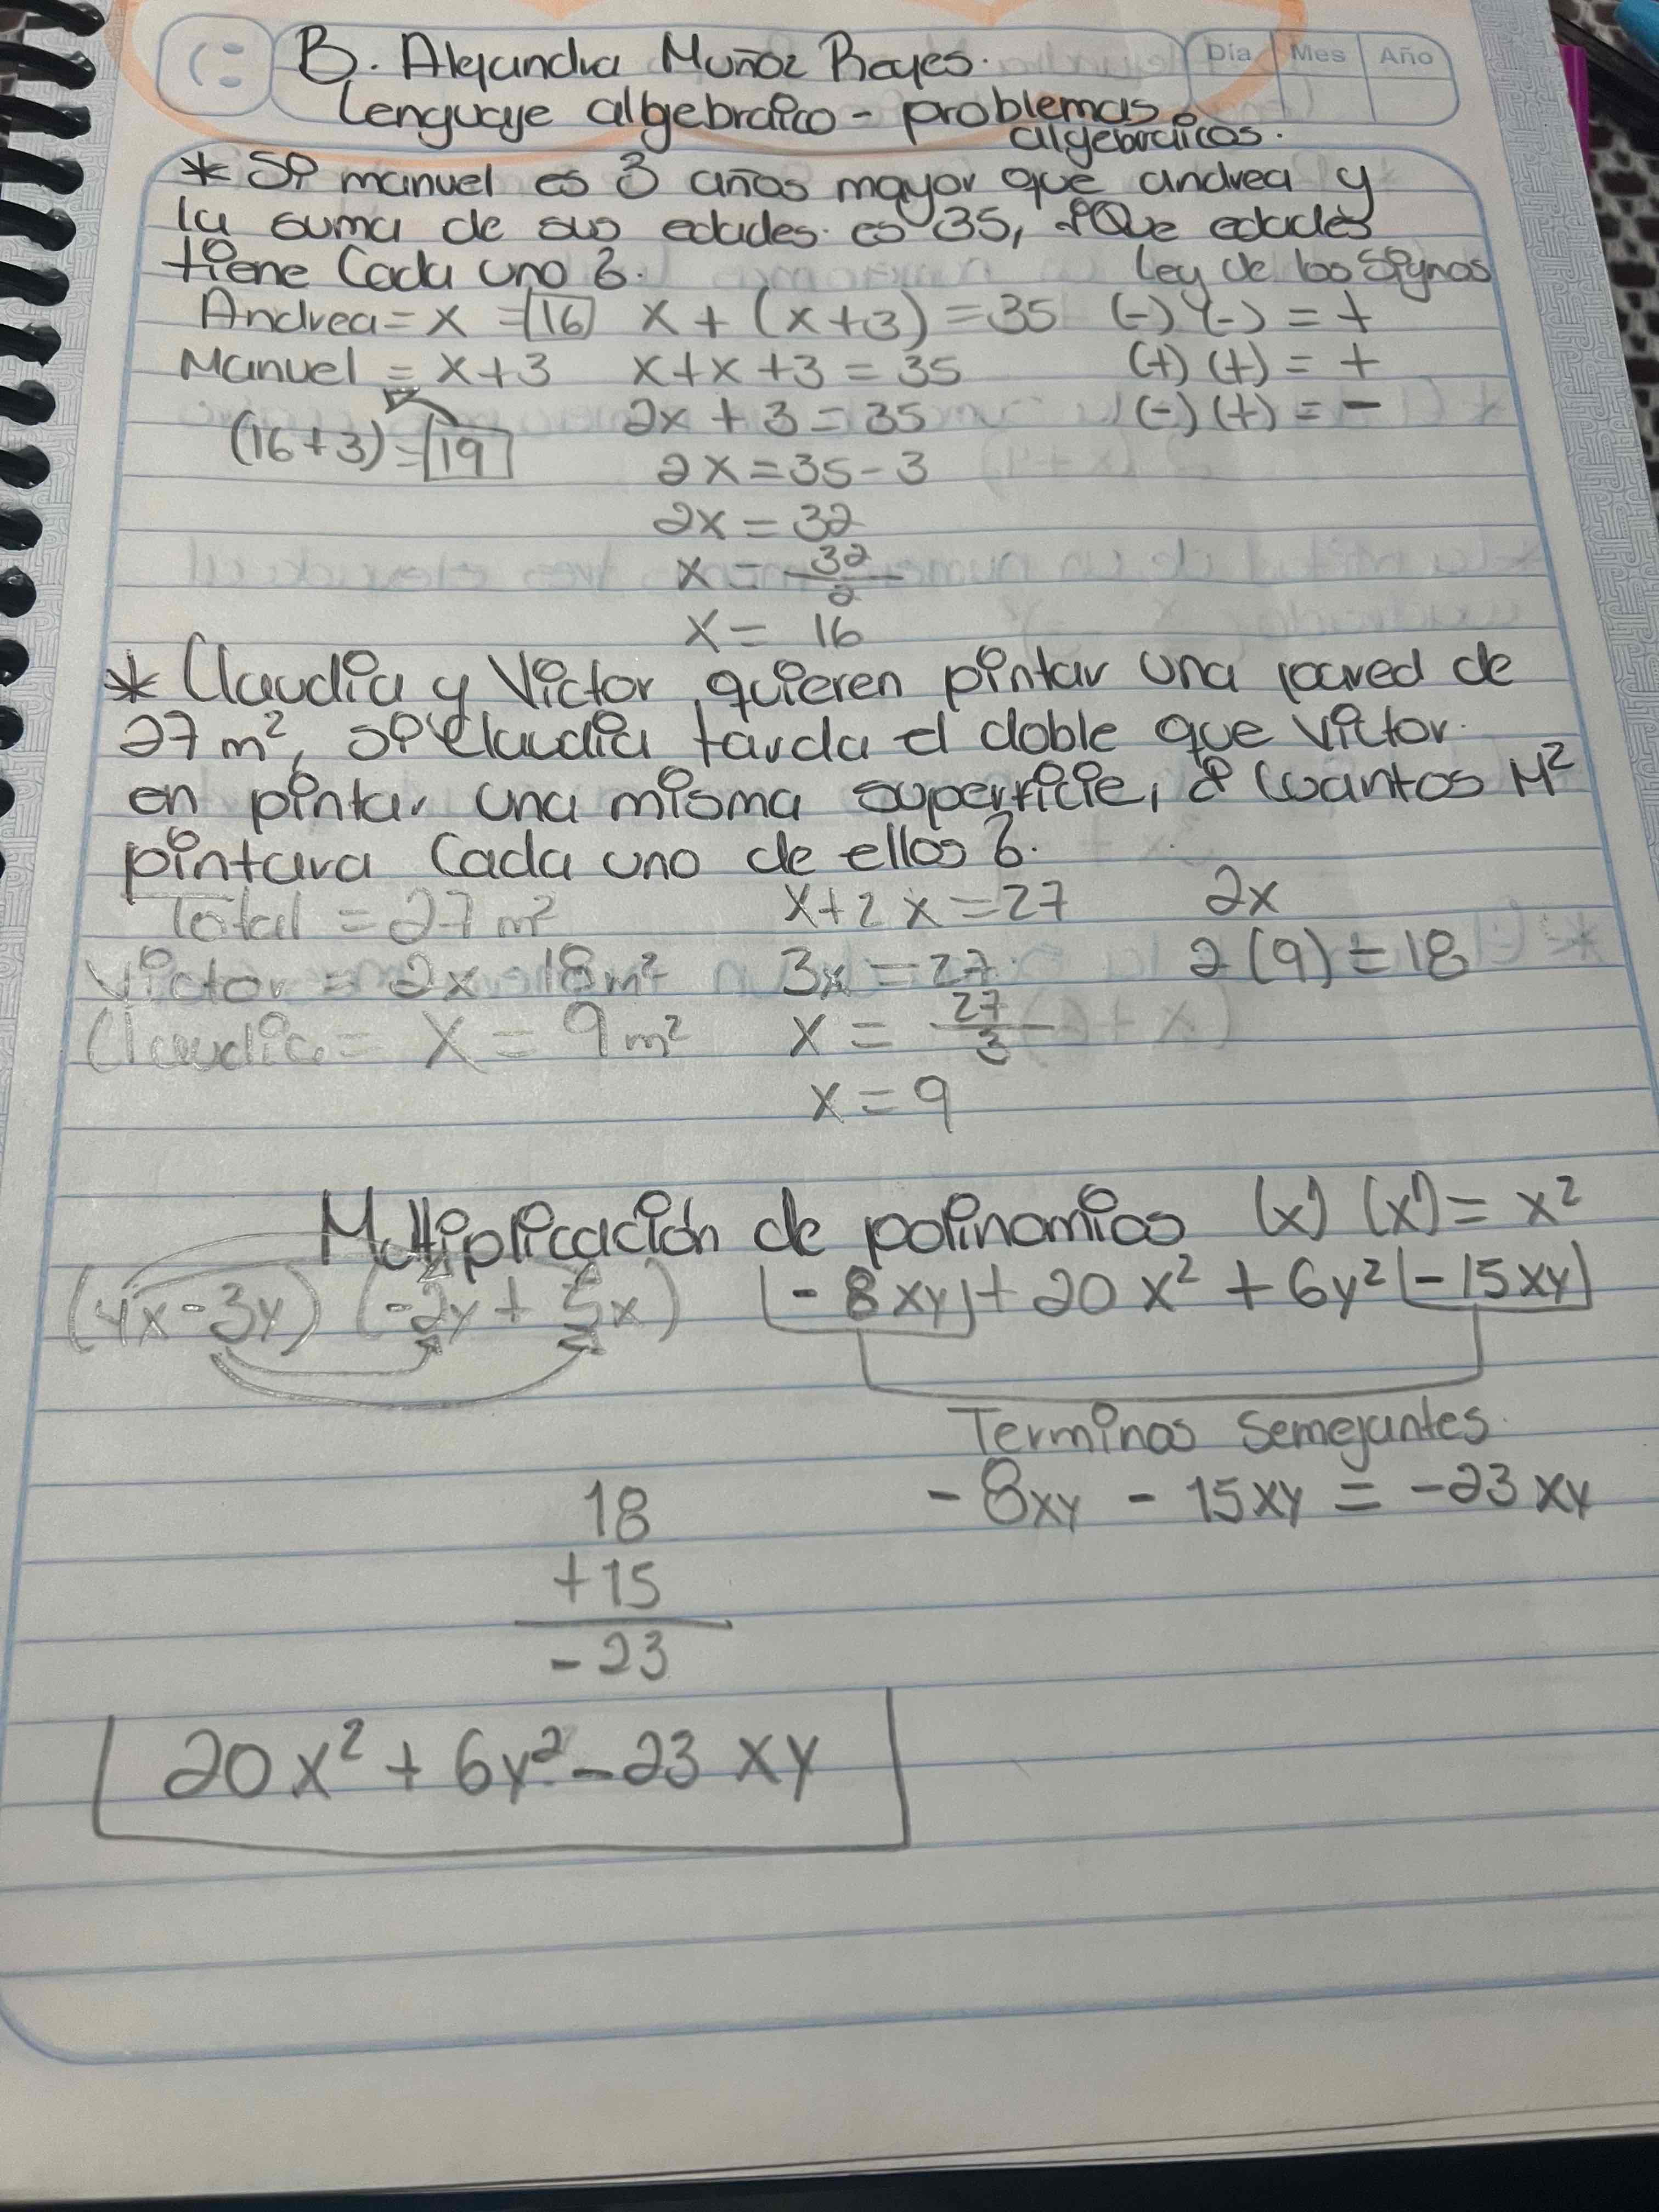 B. Alejandra Muñoz Reyes.
Día Mes Año
Lenguaje algebraico - problemas
algebraicos.
* Si manuel es 3 años mayor que andrea y
la suma de sus edades es 35, ¿Que edades
tiene Cada uno?.
Ley de los Signos
Andrea = x = 16 x + (x+3) = 35 (-) (-) = +
Manuel = x+3 x+x+3 = 35 (+) (+) = +
(16+3) = 19 2x + 3 = 35 (-) (+) = -
2x = 35-3
2x = 32
x = 32/2
x = 16
* Claudia y Victor quieren pintar una pared de
27 m², si Claudia tarda el doble que Victor
en pintar una misma superficie, ¿Cuantos M²
pintara Cada uno de ellos?.
Total = 27 m² x+2x=27 2x
Victor = 2x 18m² 3x = 27 2(9) = 18
Claudia = X = 9m² x = 27/3
x = 9
Multiplicación de polinomios (x) (x) = x²
(4x-3y) (-2y + 5x) -8xy + 20x² + 6y² -15xy
Terminos Semejantes.
-8xy - 15xy = -23xy
18
+15
-23
20x² + 6y² - 23xy